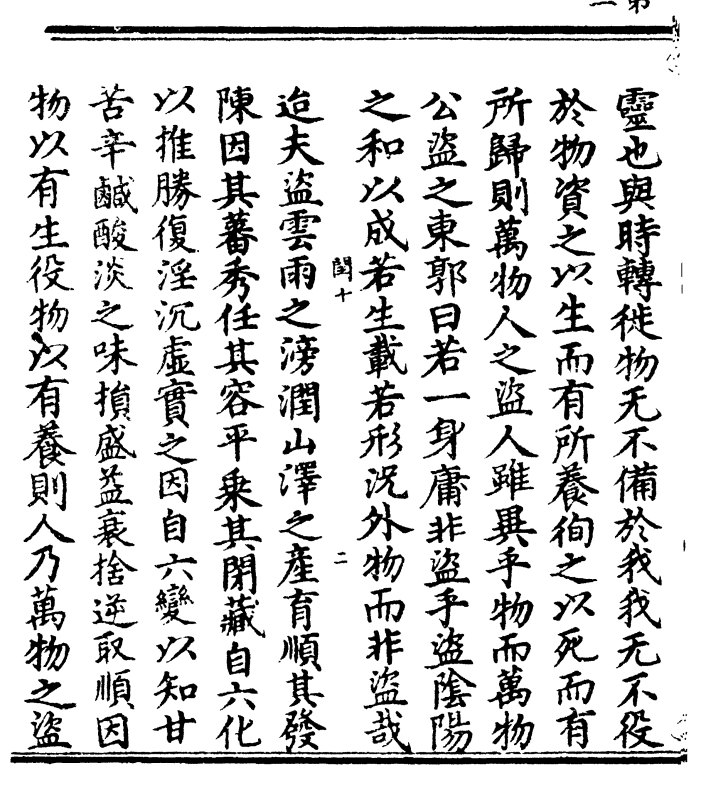 靈也與時轉徙物无不備於我我无不役
於物資之以生而有所養徇之以死而有
所歸則萬物人之盜人雖異乎物而萬物
公盜之東郭曰若一身庸非盜乎盜陰陽
之和以成若生載若形況外物而非盜哉
閏十 二
迨夫盜雲雨之滂潤山澤之產育順其發
陳因其蕃秀任其容平乗其閉藏自六化
以推勝復淫沉虛實之因自六變以知甘
苦辛鹹酸淡之味損盛益衰捨逆取順因
物以有生役物以有養則人乃萬物之盜